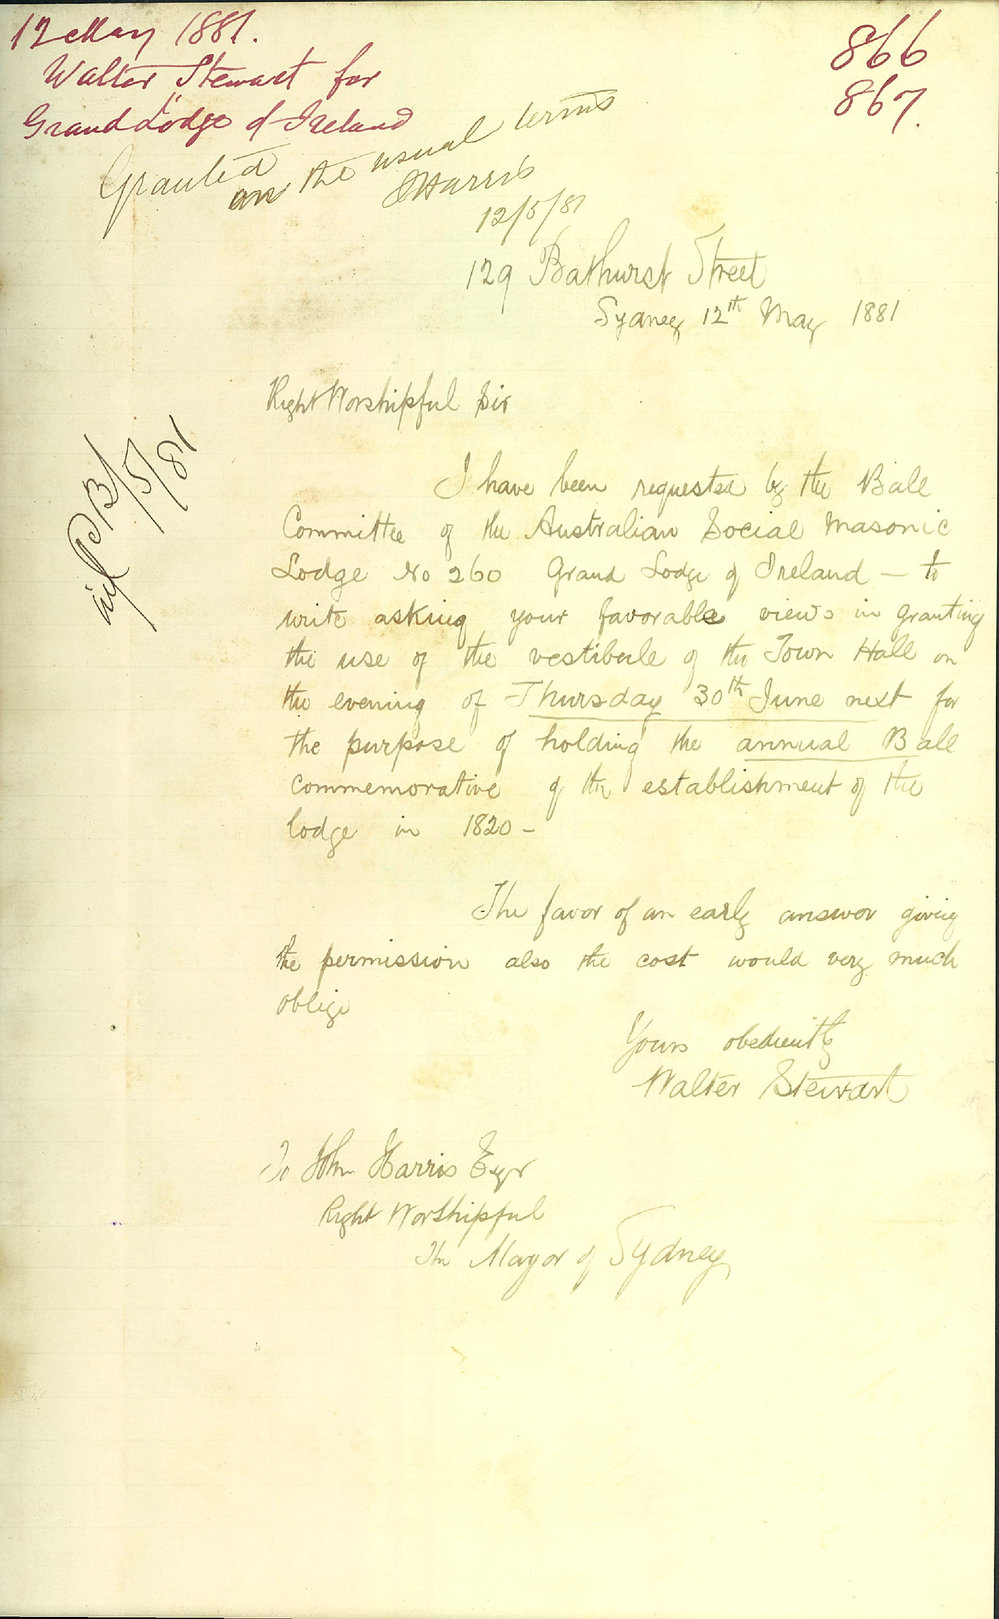 12 May 1881.
Walter Stewart for
Grand Lodge of Ireland
866
867.
Granted
on the usual terms
JHarris
12/5/81
129 Bathurst Street
Sydney 12th May 1881
Right Worshipful Sir
13/5/81
I have been requested by the Ball
Committee of the Australian Social Masonic
Lodge No 260 Grand Lodge of Ireland — to
write asking your favorable views in granting
the use of the vestibule of the Town Hall on
the evening of Thursday 30th June next for
the purpose of holding the annual Ball
commemorative of the establishment of the
lodge in 1820 –
The favor of an early answer giving
the permission also the cost would very much
oblige
Yours obediently
Walter Stewart
To John Harris Esqr
Right Worshipful
The Mayor of Sydney